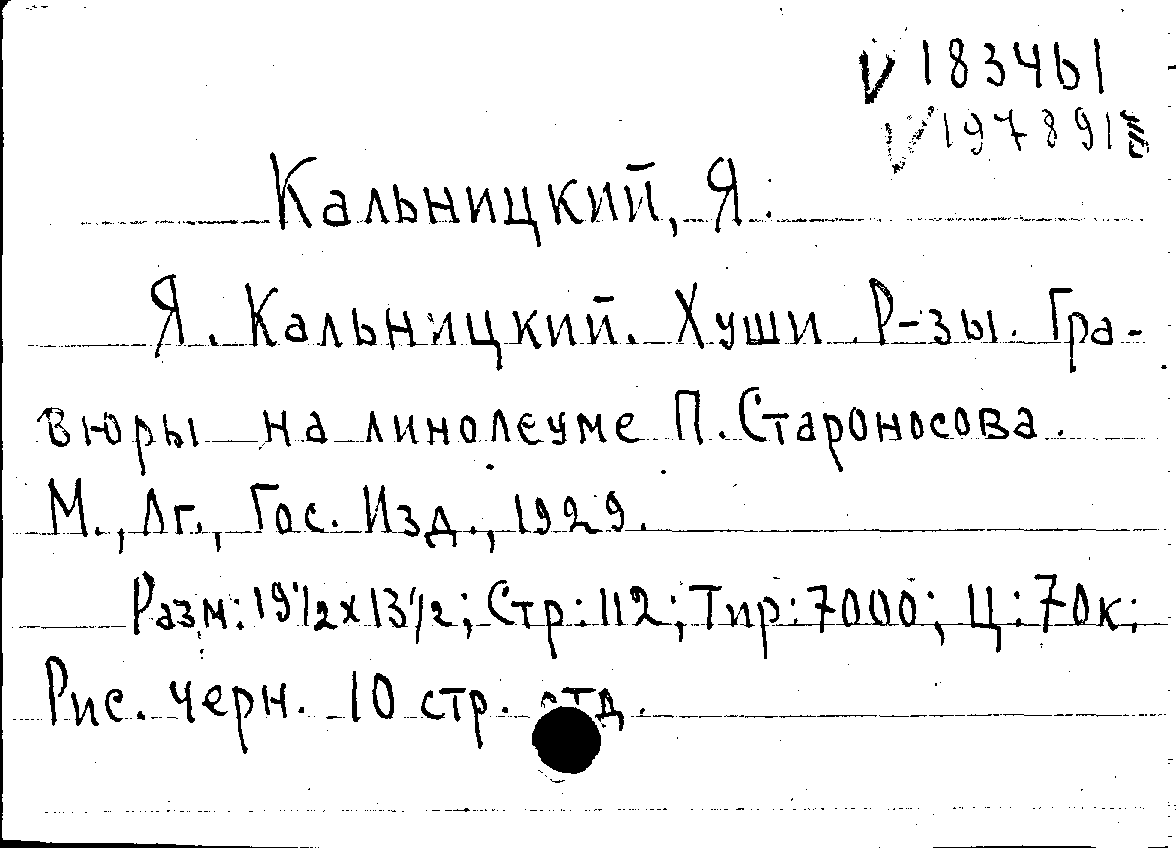 V 183461
V 197891
Кальницкий, Я.
Я. Кальницкий. Хуши. Р-зы. Гра-
вюры на линолеуме П. Староносова.
М., Лг., Гос. Изд., 1929.
Разм: 19 1/2 x 13 1/2; Стр: 112; Тир: 7000; Ц: 70к;
Рис. черн. 10 стр. отд.